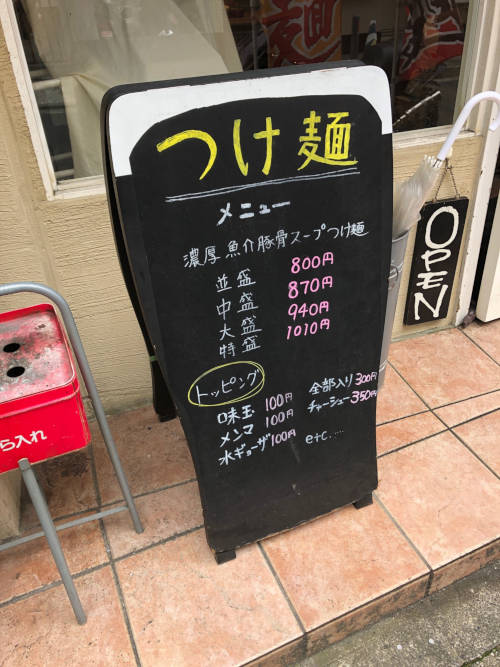 麺
つけ麺
メニュー
濃厚魚介豚骨スープつけ麺
並盛 800円
中盛 870円
大盛 940円
特盛 1010円
トッピング
味玉 100円
メンマ 100円
水ギョーザ 100円
全部入り 300円
チャーシュー 350円
etc.....
OPEN
ら入れ